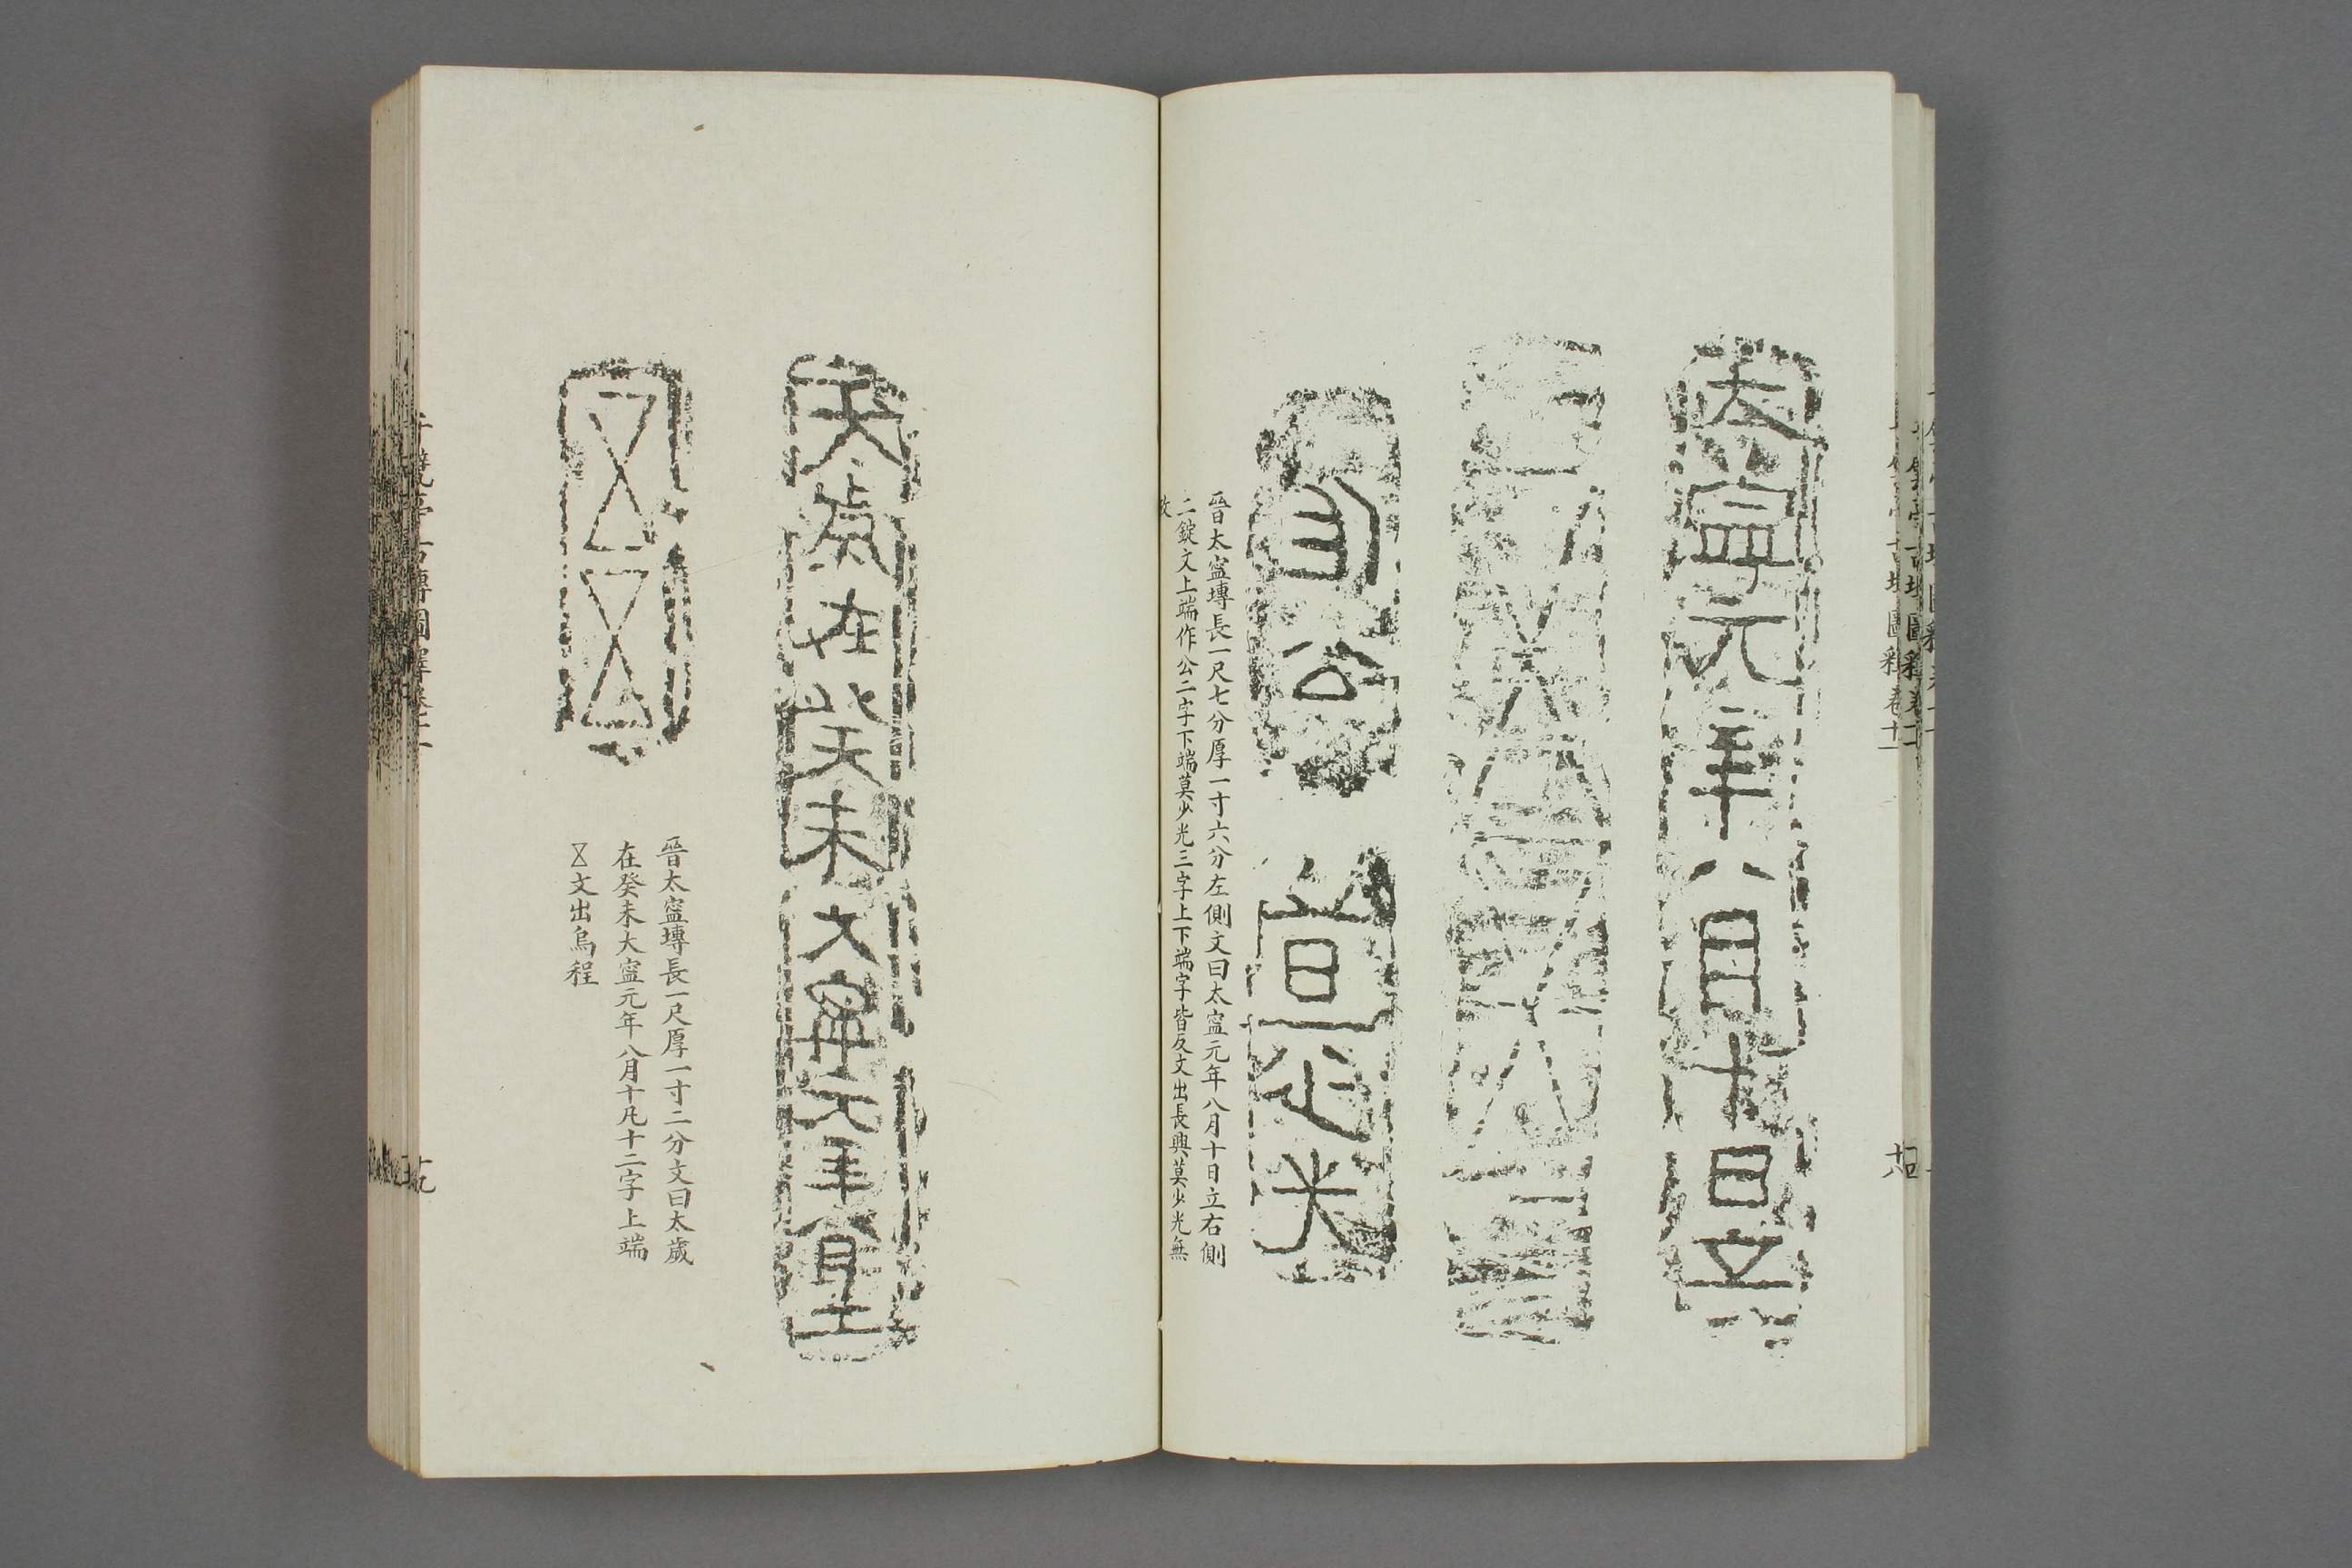 太寍元年八月十日立
作公
莫少光
晉太寍塼長一尺七分厚一寸六分左側文曰太寍元年八月十日立右側
二錠文上端作公二字下端莫少光三字上下端字皆反文出長興莫少光無
攷
太歲在癸未大寍元年八月十
晉太寍塼長一尺厚一寸二分文曰太歲
在癸未大寍元年八月十凡十二字上端
文出烏程
十九